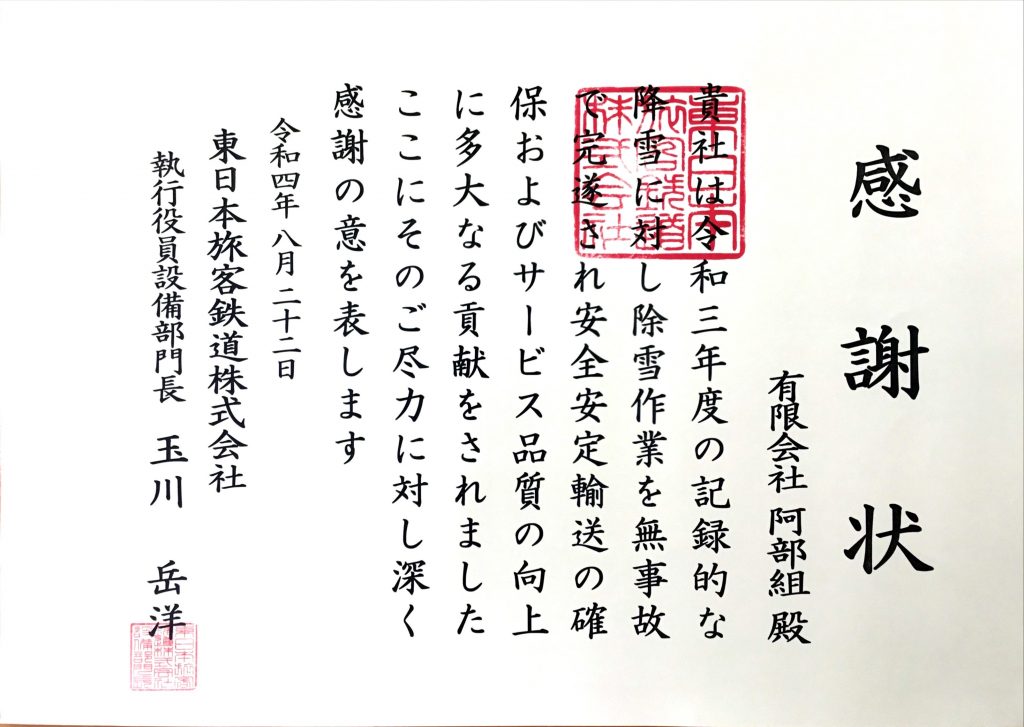 感謝状
有限会社 阿部組 殿
貴社は令和三年度の記録的な
降雪に対し除雪作業を無事故
で完遂され安全安定輸送の確
保およびサービス品質の向上
に多大なる貢献をされました
ここにそのご尽力に対し深く
感謝の意を表します
令和四年八月二十二日
東日本旅客鉄道株式会社
執行役員設備部門長 玉川 岳洋
東日本
旅客鉄道
株式会社